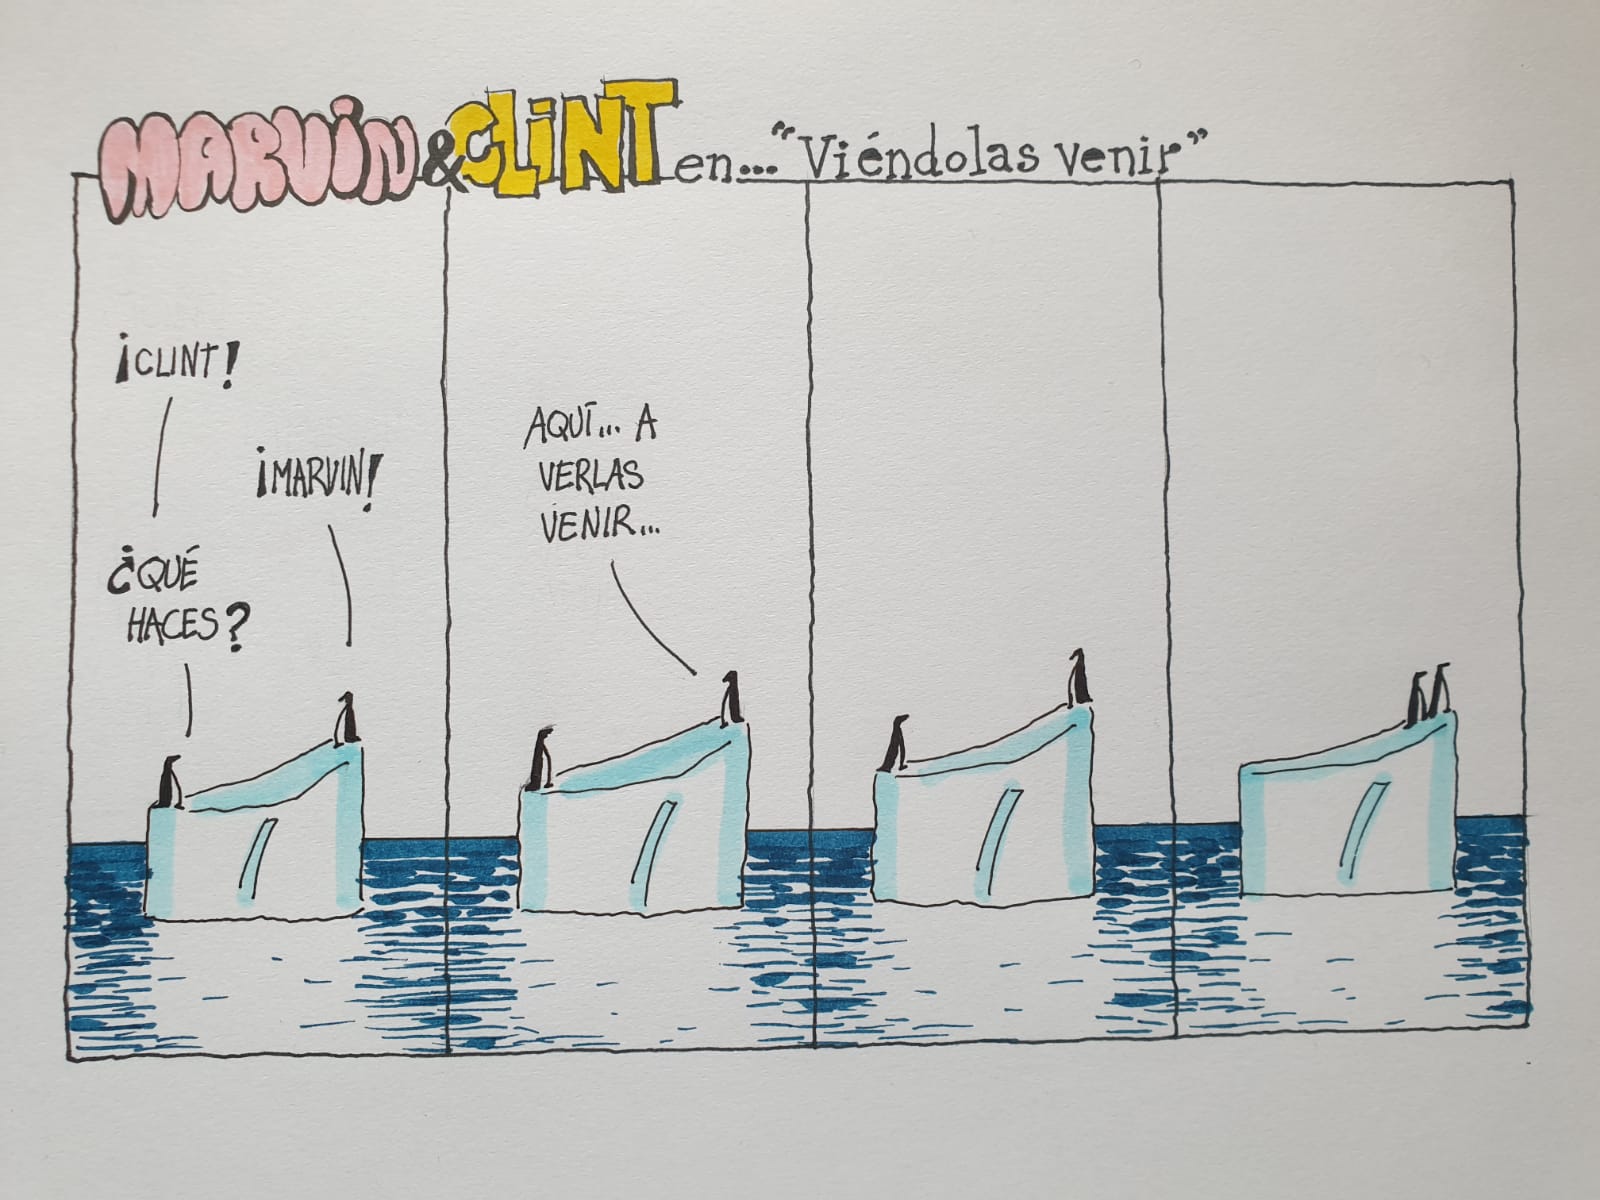 MARVIN & CLINT en... "Viéndolas venir"
¡CLINT!
¡MARVIN!
¿QUÉ
HACES?
AQUÍ... A
VERLAS
VENIR...